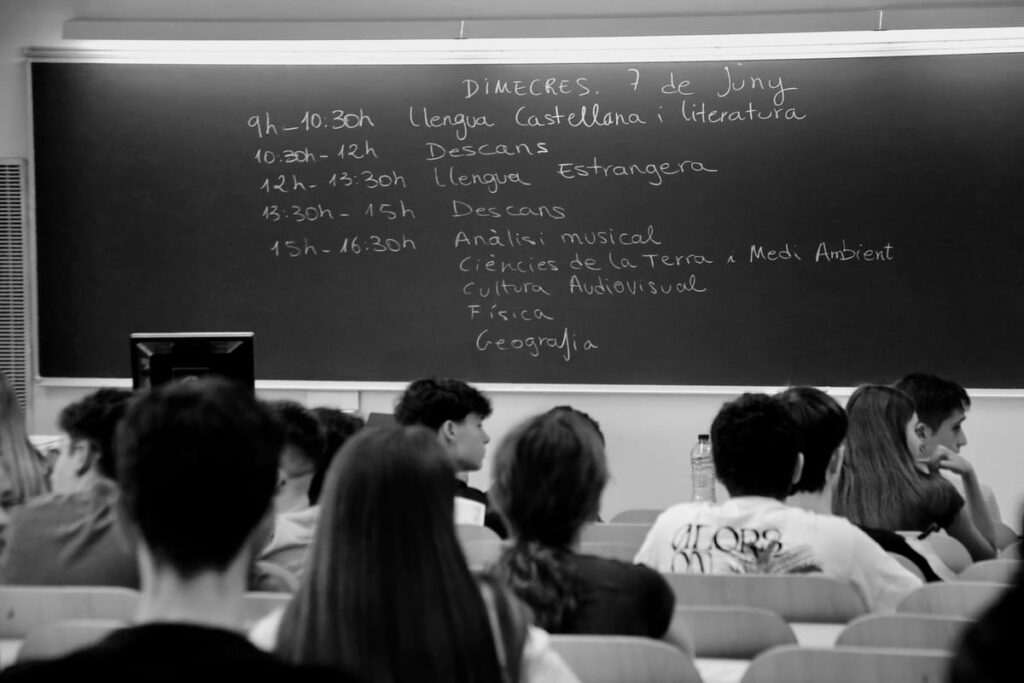 DIMECRES. 7 de Juny
9h-10:30h Llengua Castellana i literatura
10:30h-12h Descans
12h-13:30h Llengua Estrangera
13:30h-15h Descans
15h-16:30h Anàlisi musical
Ciències de la Terra i Medi Ambient
Cultura Audiovisual
Física
Geografia